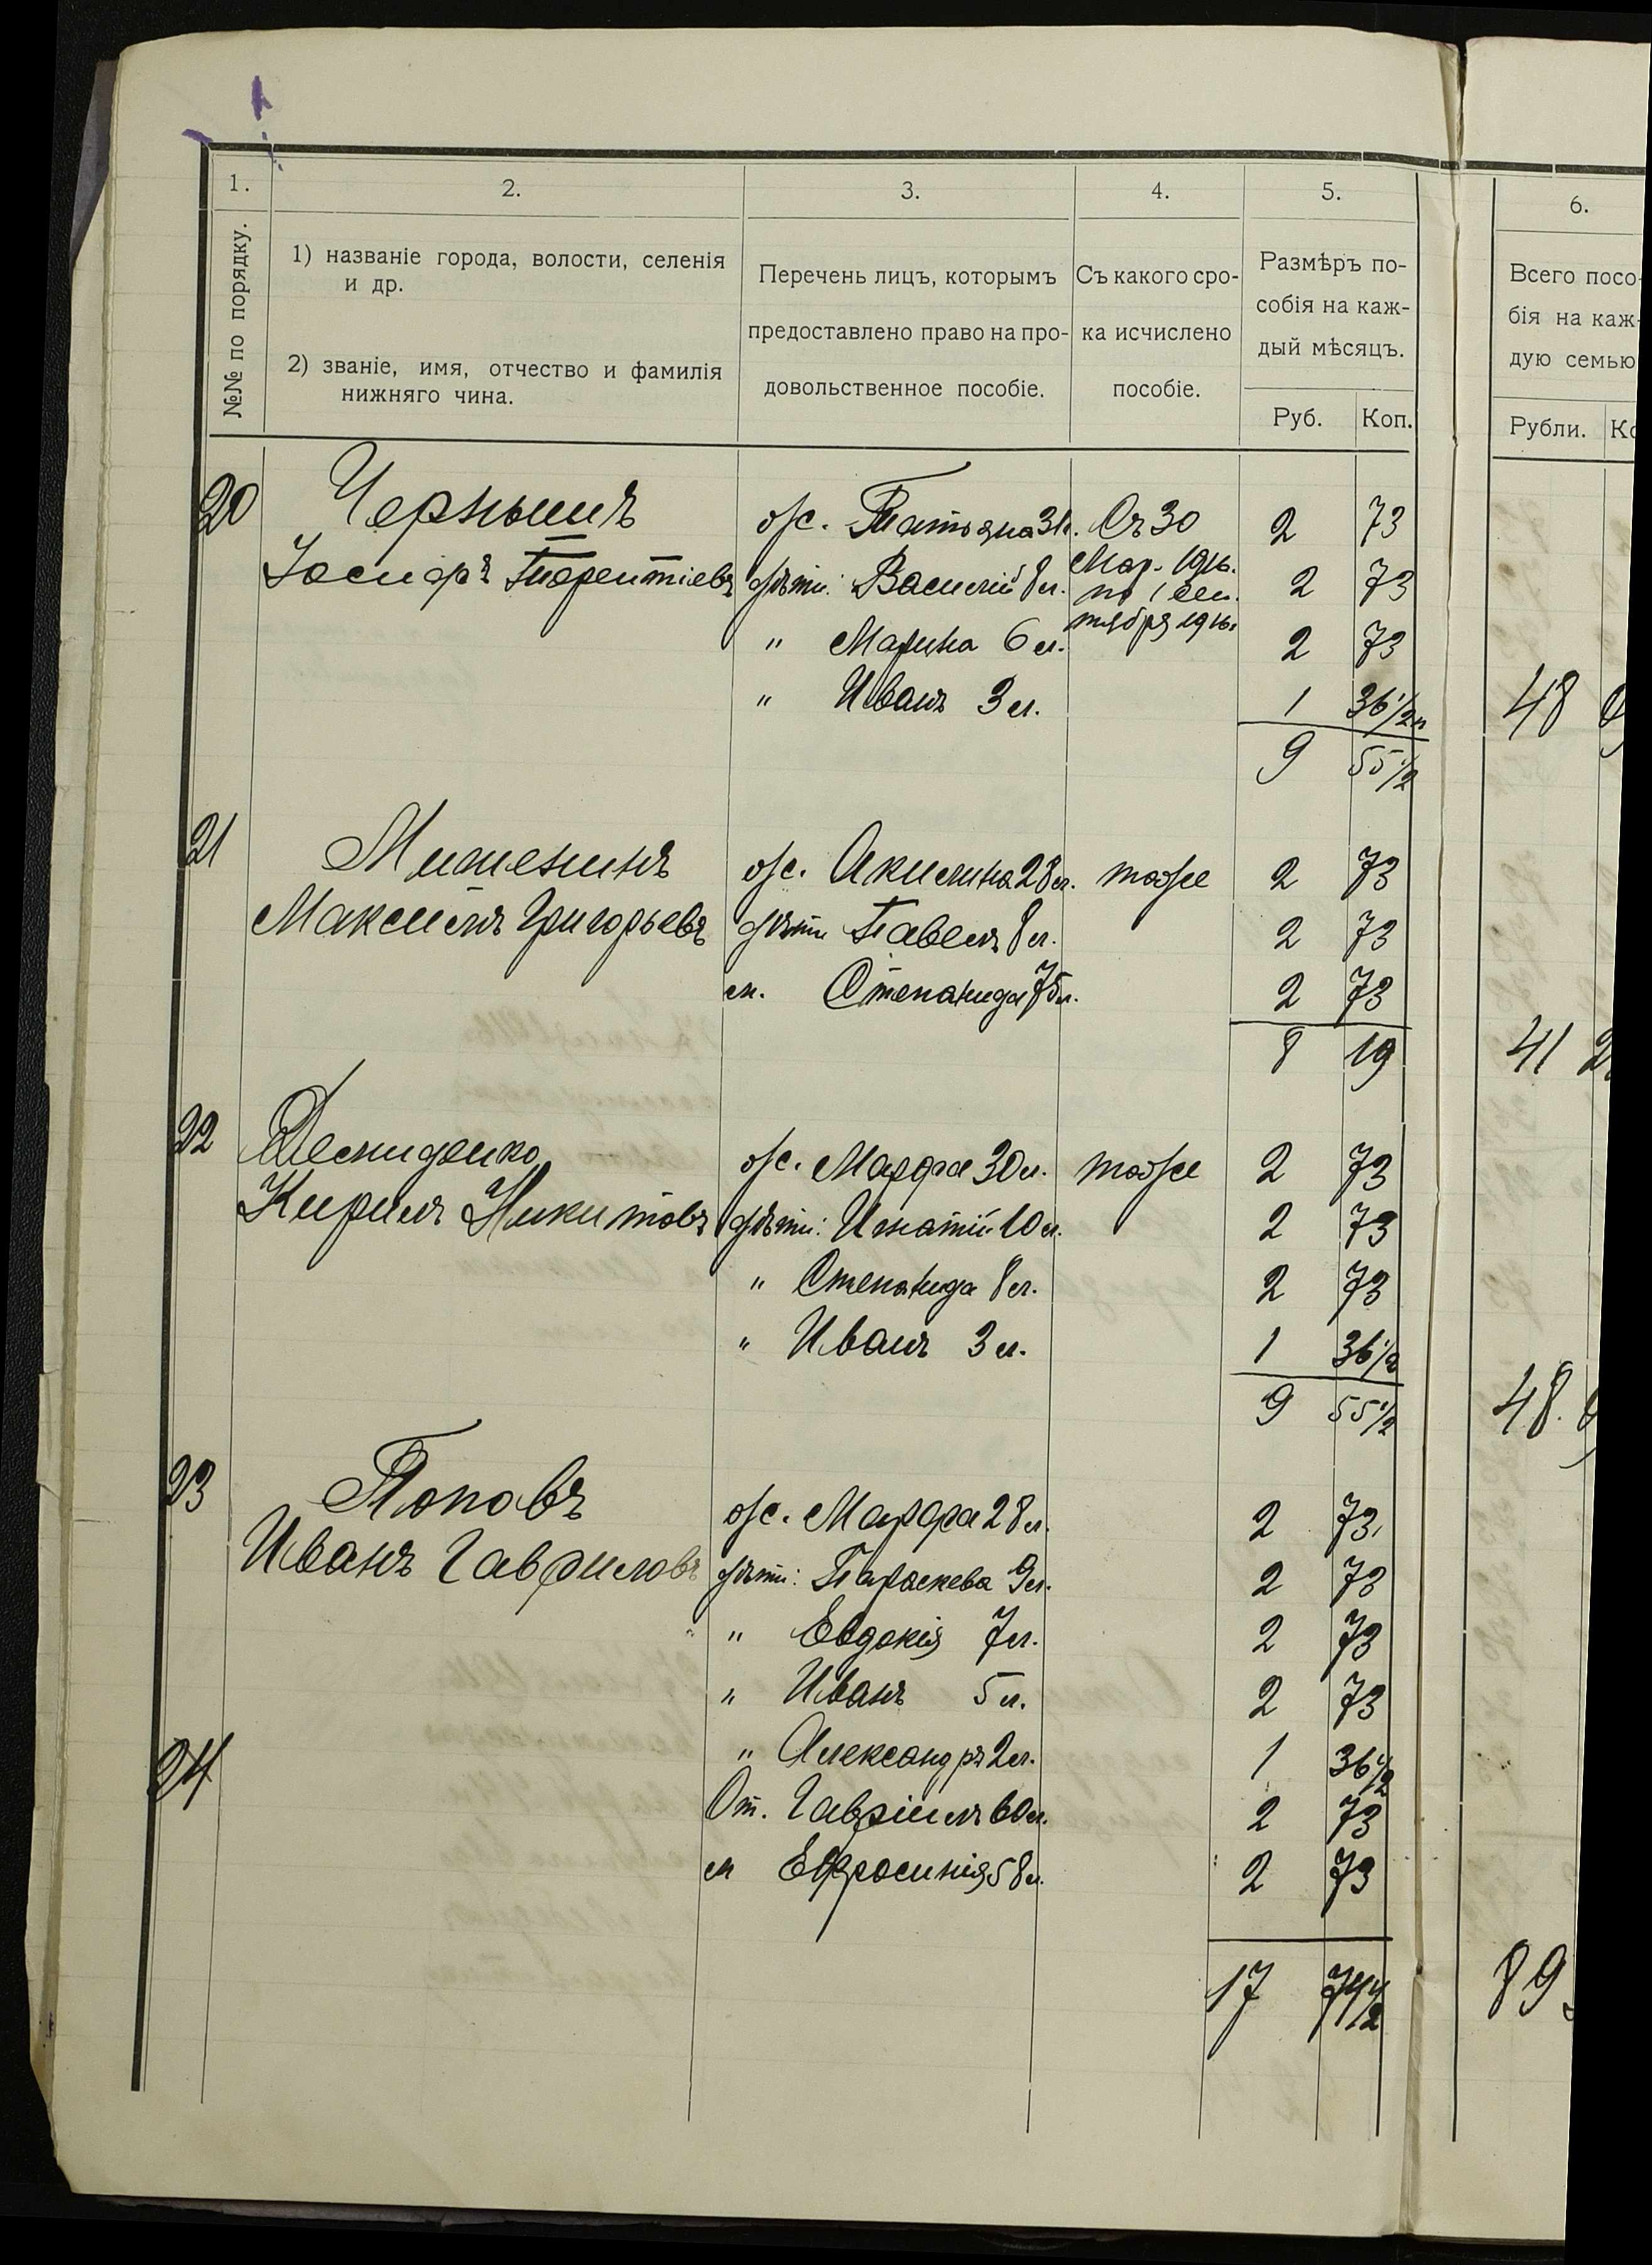 1. 2. 3. 4. 5. 6.
№№ по порядку.
1) названіе города, волости, селенія
и др.
2) званіе, имя, отчество и фамилія
нижняго чина.
Перечень лицъ, которымъ
предоставлено право на про-
довольственное пособіе.
Съ какого сро-
ка исчислено
пособіе.
Размѣръ по-
собія на каж-
дый мѣсяцъ.
Руб. Коп.
Всего посо-
бія на каж-
дую семью
Рубли. Ко
20 Чернышъ ж. Татьяна 31 л. Съ 30 2 73
Іосифъ Терентіевъ дѣти: Василій 8 л. Мар. 1916. 2 73
по 1 Сен.
" Марина 6 л. тября 1916 2 73
" Иванъ 3 л. 1 36 1/2 48
9 55 1/2
21 Миненинъ ж. Акилина 28 л. тоже 2 73
Максимъ Григорьевъ дѣти Павелъ 8 л. 2 73
м. Степанида 75 л. 2 73
8 19 41
22 Демиденко ж. Марфа 30 л. тоже 2 73
Кирилъ Никитовъ дѣти: Игнатій 10 л. 2 73
" Степанида 8 л. 2 73
" Иванъ 3 л. 1 36 1/2
9 55 1/2 48.
23 Поповъ ж. Марфа 28 л. 2 73
Иванъ Гавриловъ дѣти: Параскева 9 л. 2 73
" Евдокія 7 л. 2 73
" Иванъ 5 л. 2 73
24 " Александръ 2 л. 1 36 1/2
От. Гавріилъ 60 л. 2 73
м Ефросинія 58 л. 2 73
17 74 1/2 89